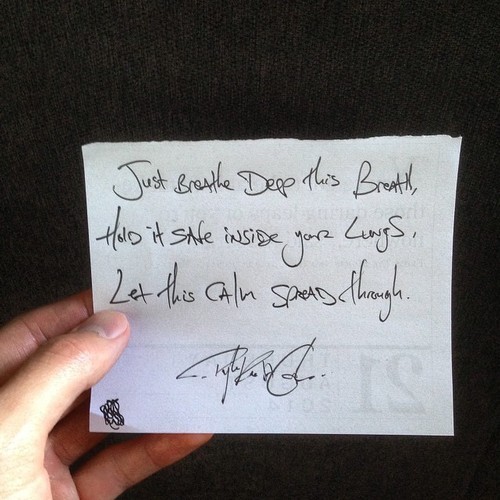 Just Breathe Deep this Breath,
Hold it safe inside your Lungs,
Let this calm spread through.
21